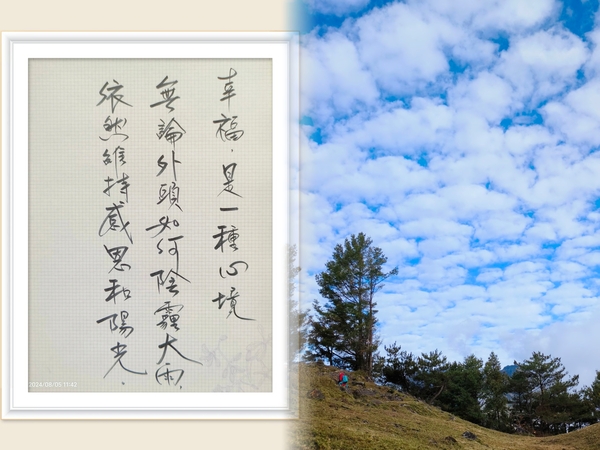 幸福，是一種心境
無論外頭如何陰霾大雨，
依然維持感恩和陽光．
2024/06/05 11:42